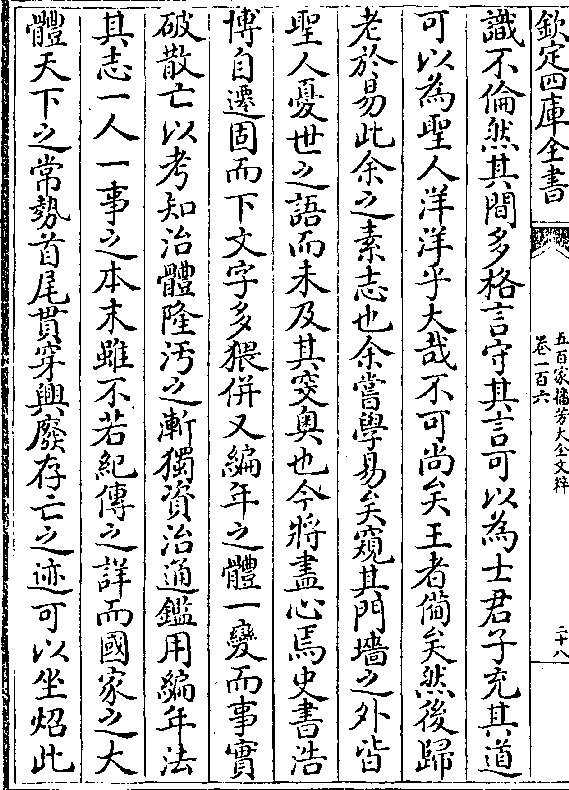 欽定四庫全書
五百家播芳大全文粹
卷一百六
二十八
識不倫然其間多格言守其言可以為士君子充其道
可以為聖人洋洋乎大哉不可尚矣王者備矣然後歸
老於易此余之素志也余嘗學易矣窺其門墻之外皆
聖人憂世之語而未及其突奥也今將盡心焉史書浩
博自遷固而下文字多猥併又編年之體一變而事實
破散亡以考知治體隆汚之漸獨資治通鑑用編年法
其志一人一事之本末雖不若紀傳之詳而國家之大
體天下之常勢首尾貫穿興廢存亡之迹可以坐炤此